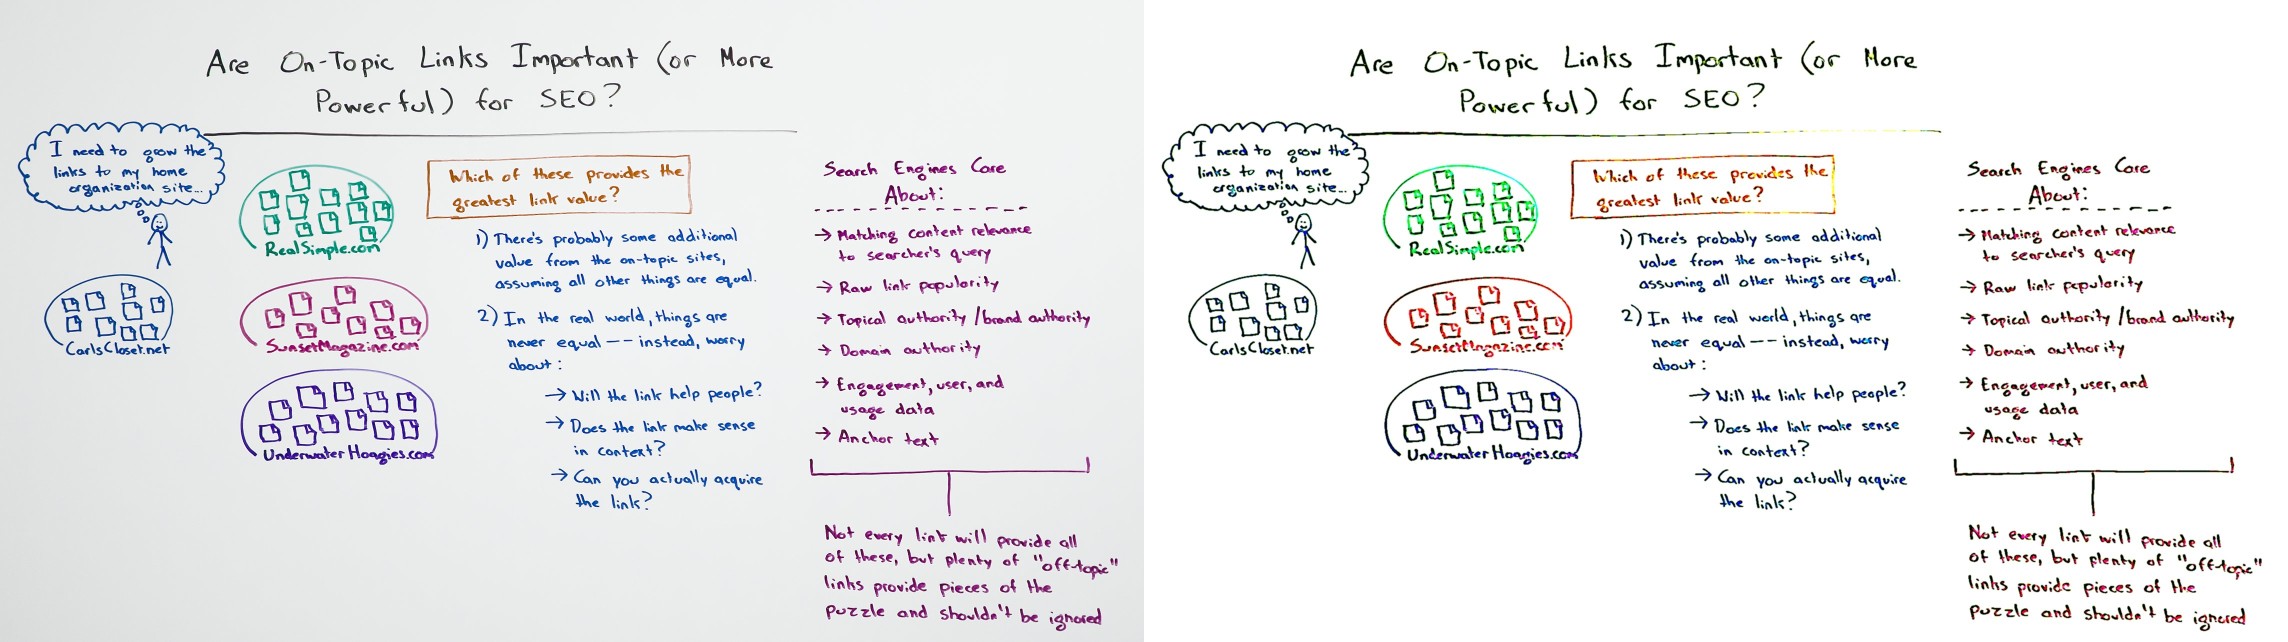 Are On-Topic Links Important (or More
Powerful) for SEO?
I need to grow the
links to my home
organization site...
RealSimple.com
CarlsCloset.net
SunsetMagazine.com
UnderwaterHoagies.com
Which of these provides the
greatest link value?
1) There's probably some additional
value from the on-topic sites,
assuming all other things are equal.
2) In the real world, things are
never equal -- instead, worry
about:
→ Will the link help people?
→ Does the link make sense
in context?
→ Can you actually acquire
the link?
Search Engines Care
About:
→ Matching content relevance
to searcher's query
→ Raw link popularity
→ Topical authority/brand authority
→ Domain authority
→ Engagement, user, and
usage data
→ Anchor text
Not every link will provide all
of these, but plenty of "off-topic"
links provide pieces of the
puzzle and shouldn't be ignored
Are On-Topic Links Important (or More
Powerful) for SEO?
I need to grow the
links to my home
organization site...
RealSimple.com
CarlsCloset.net
SunsetMagazine.com
UnderwaterHoagies.com
Which of these provides the
greatest link value?
1) There's probably some additional
value from the on-topic sites,
assuming all other things are equal.
2) In the real world, things are
never equal -- instead, worry
about:
→ Will the link help people?
→ Does the link make sense
in context?
→ Can you actually acquire
the link?
Search Engines Care
About:
→ Matching content relevance
to searcher's query
→ Raw link popularity
→ Topical authority/brand authority
→ Domain authority
→ Engagement, user, and
usage data
→ Anchor text
Not every link will provide all
of these, but plenty of "off-topic"
links provide pieces of the
puzzle and shouldn't be ignored